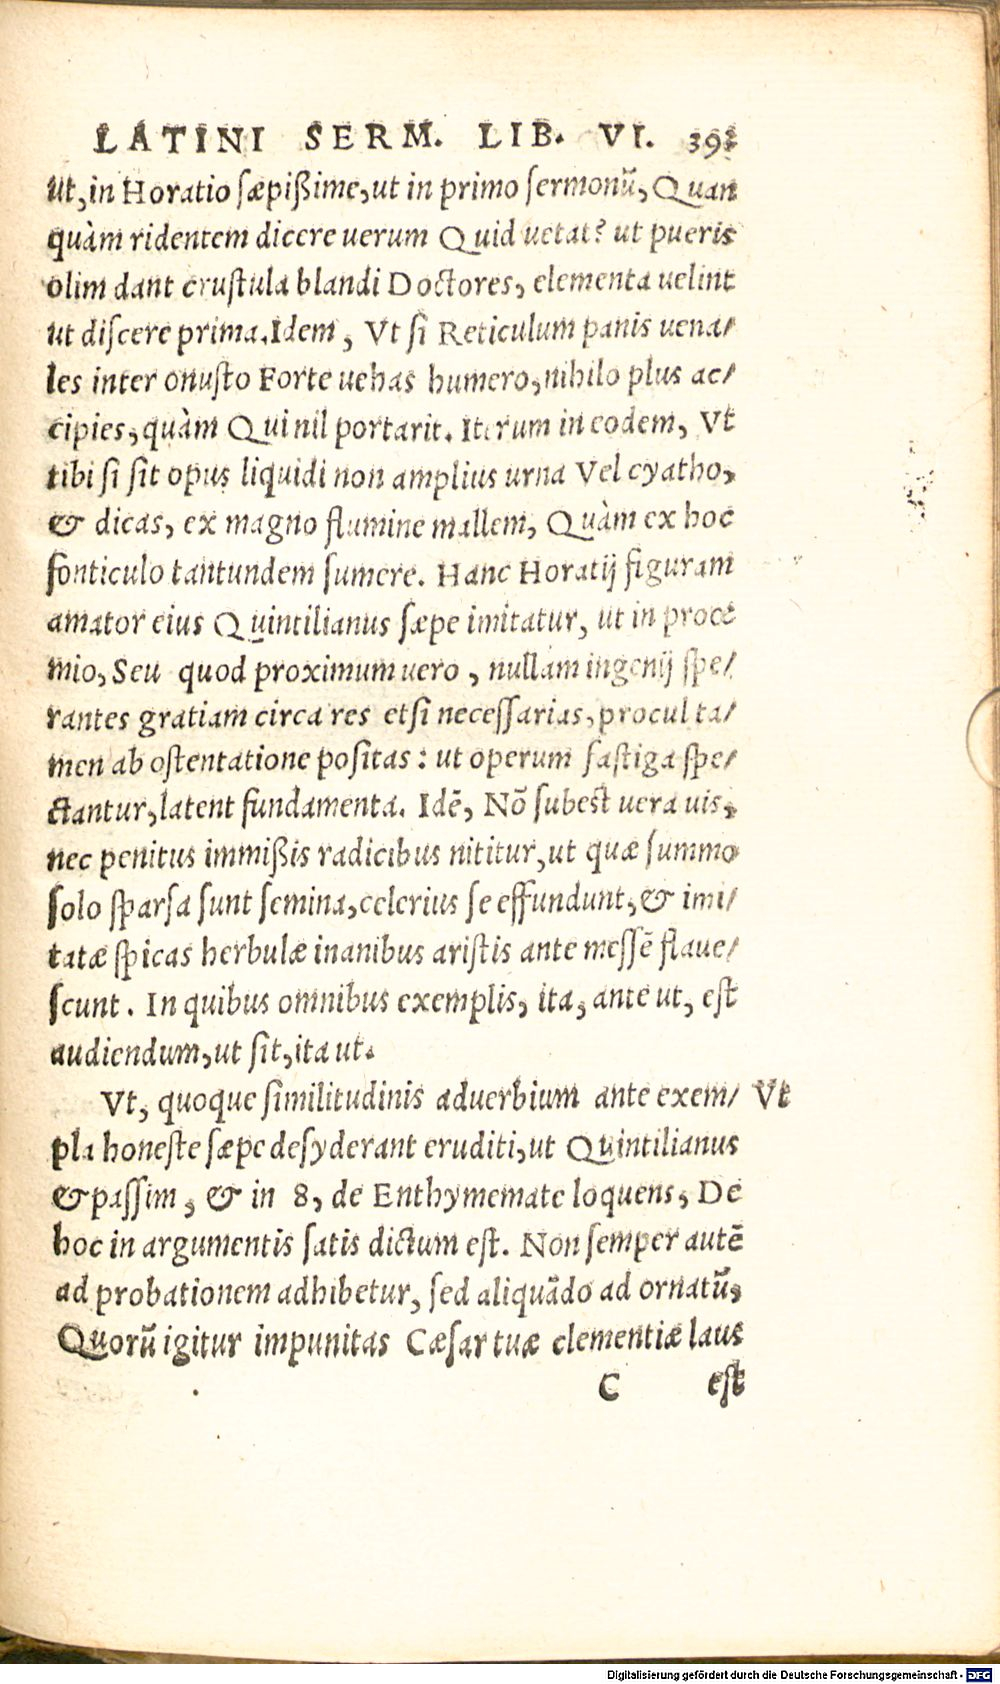 LATINI SERM. LIB. VI. 393
ut, in Horatio sæpißime, ut in primo sermonū, Quan
quàm ridentem dicere uerum Quid uetat? ut pueris
olim dant crustula blandi Doctores, elementa uelint
ut discere prima. Idem, Vt si Reticulum panis uena/
les inter onusto Forte uehas humero, nihilo plus ac/
cipies, quàm Qui nil portarit. Iterum in eodem, Vt
tibi si sit opus liquidi non amplius urna Vel cyatho,
& dicas, ex magno flumine mallem, Quàm ex hoc
fonticulo tantundem sumere. Hanc Horatij figuram
amator eius Quintilianus sæpe imitatur, ut in procę
mio, Seu quod proximum uero, nullam ingenij spe/
rantes gratiam circa res etsi necessarias, procul ta/
men ab ostentatione positas: ut operum fastiga spe/
ctantur, latent fundamenta. Idē, Nō subest uera uis,
nec penitus immißis radicibus nititur, ut quæ summo
solo sparsa sunt semina, celerius se effundunt, & imi/
tatæ spicas herbulæ inanibus aristis ante messē flaue/
scunt. In quibus omnibus exemplis, ita, ante ut, est
audiendum, ut sit, ita ut.
Vt, quoque similitudinis aduerbium ante exem/ Vt
pla honeste sæpe desyderant eruditi, ut Quintilianus
& passim, & in 8, de Enthymemate loquens, De
hoc in argumentis satis dictum est. Non semper autē
ad probationem adhibetur, sed aliquādo ad ornatū,
Quorū igitur impunitas Cæsar tuæ clementiæ laus
C est
Digitalisierung gefördert durch die Deutsche Forschungsgemeinschaft - DFG